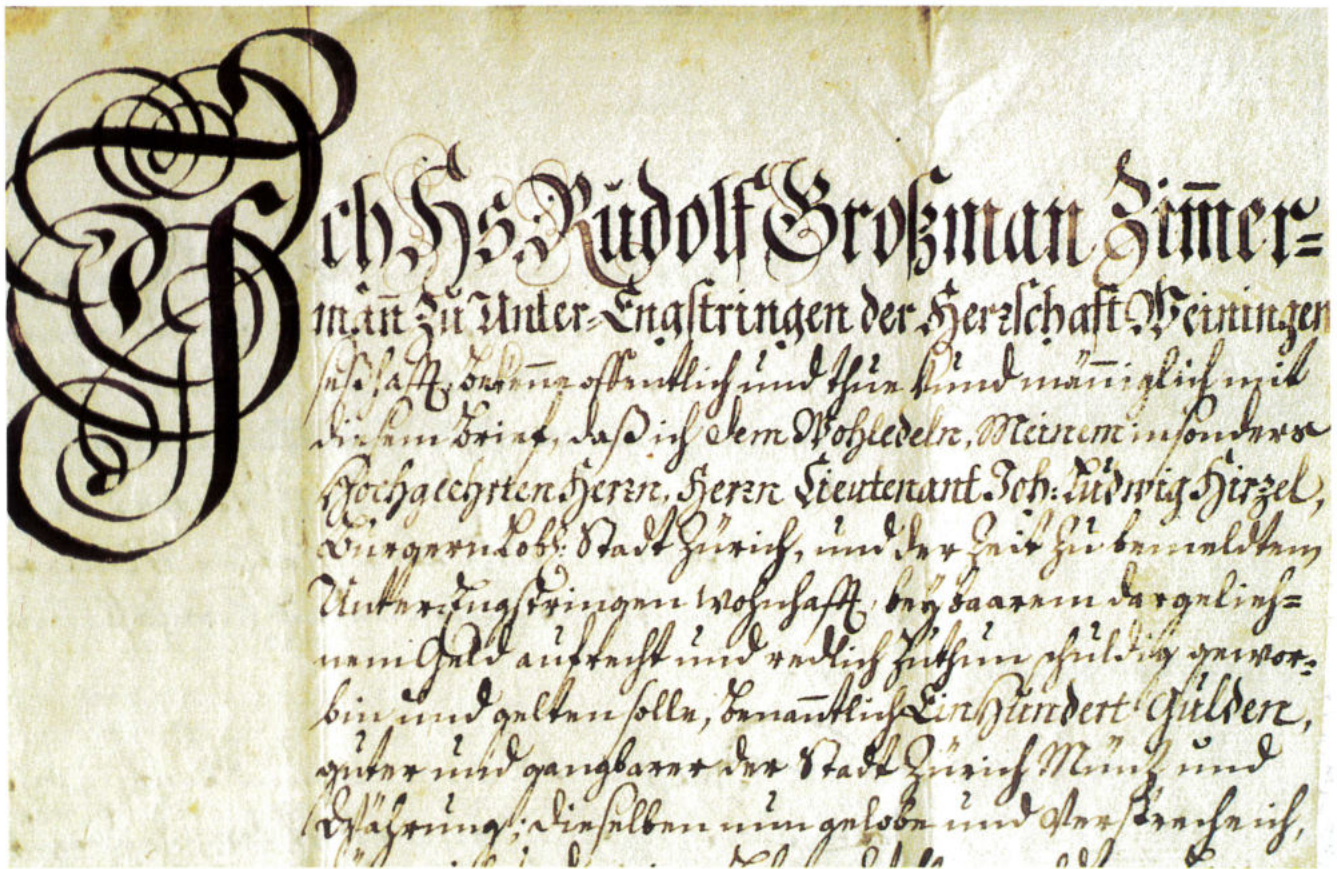 Ich Hs. Rudolf Großman Zim̄er=
man̄ zu Unter-Engstringen der Herrschaft Weiningen
seßhafft, beken̄e offentlich und thue kund män̄iglich mit
diesem Brief, daß ich dem Wohledeln, Meinem insonders
Hochgeehrten Herrn, Herrn Lieutenant Joh: Ludwig Hirzel,
Burgern Lobl: Stadt Zürich, und der Zeit zu bemeldtem
Unter-Engstringen wohnhafft, bey baarem dargelieh=
nem Geld aufrecht und redlich zuthun schuldig gewor=
bin und gelten solle, benan̄tlich Ein Hundert Gulden,
guter und gangbarer der Stadt Zürich Müntz und
Währung; dieselben nun gelobe und verspreche ich,